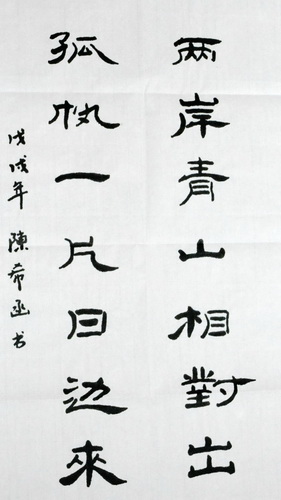 两岸青山相對出
孤帆一片日边来
戊戌年 陳希函书